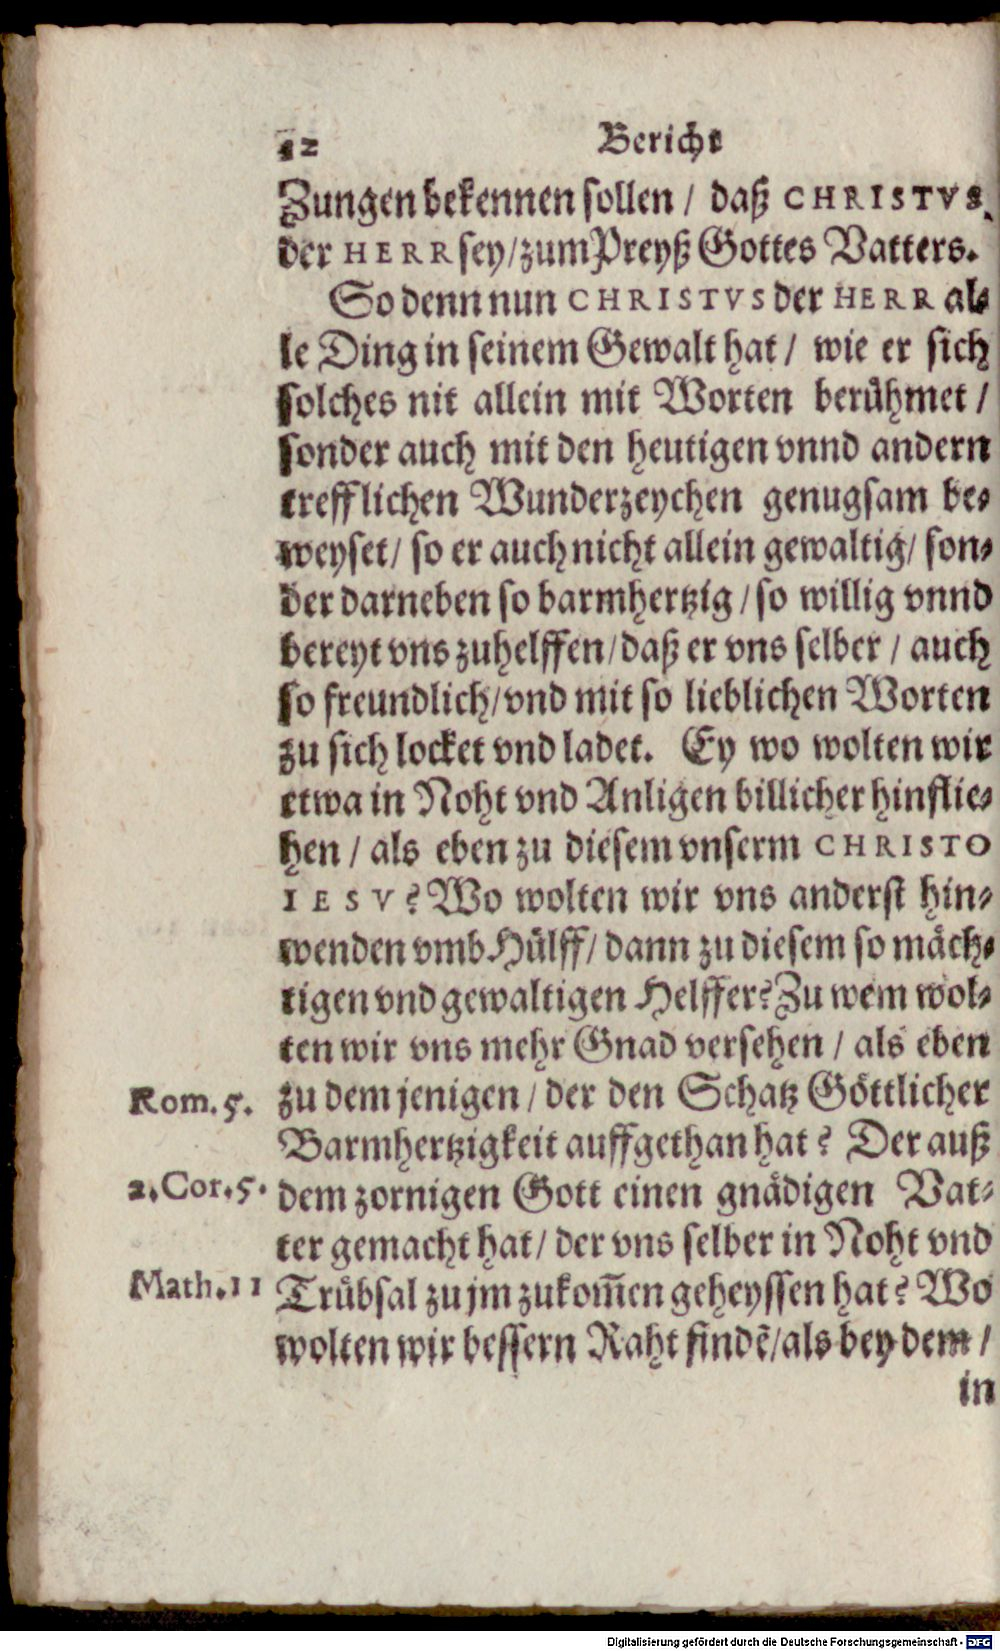 12 Bericht
Zungen bekennen sollen / daß CHRISTVS
der HERR sey/zum Preyß Gottes Vatters.
So denn nun CHRISTVS der HERR al-
le Ding in seinem Gewalt hat / wie er sich
solches nit allein mit Worten berühmet /
sonder auch mit den heutigen vnnd andern
trefflichen Wunderzeychen genugsam be-
weyset/ so er auch nicht allein gewaltig/ son-
der darneben so barmhertzig / so willig vnnd
bereyt vns zuhelffen/daß er vns selber / auch
so freundlich/vnd mit so lieblichen Worten
zu sich locket vnd ladet. Ey wo wolten wir
etwa in Noht vnd Anligen billicher hinflie-
hen / als eben zu diesem vnserm CHRISTO
IESV? Wo wolten wir vns anderst hin-
wenden vmb Hülff/ dann zu diesem so mäch-
tigen vnd gewaltigen Helffer? Zu wem wol-
ten wir vns mehr Gnad versehen / als eben
Rom. 5. zu dem jenigen / der den Schatz Göttlicher
Barmhertzigkeit auffgethan hat? Der auß
2. Cor. 5. dem zornigen Gott einen gnädigen Vat-
ter gemacht hat/ der vns selber in Noht vnd
Math. 11 Trübsal zu jm zukom̃en geheyssen hat? Wo
wolten wir bessern Raht findẽ/als bey dem /
in
Digitalisierung gefördert durch die Deutsche Forschungsgemeinschaft - DFG